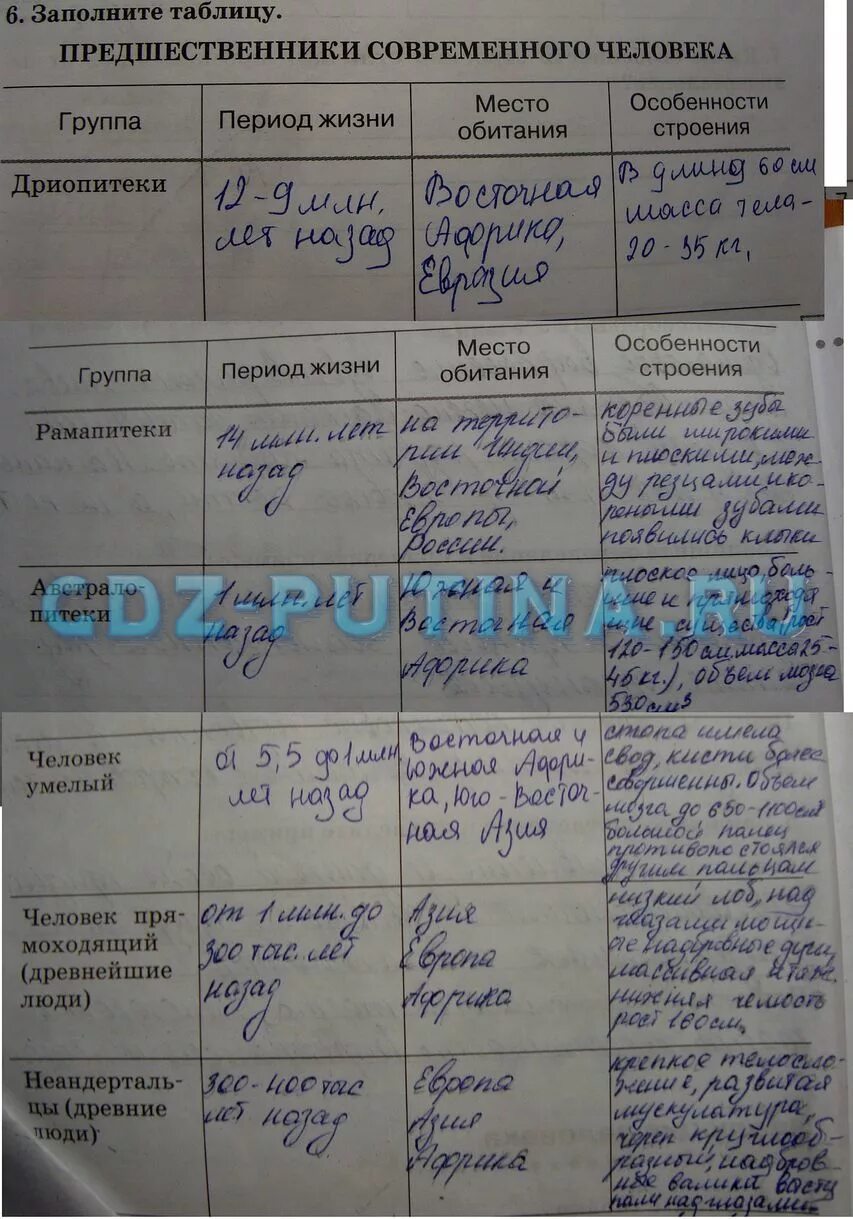 6. Заполните таблицу.
ПРЕДШЕСТВЕННИКИ СОВРЕМЕННОГО ЧЕЛОВЕКА
Группа
Период жизни
Место
обитания
Особенности
строения
Дриопитеки
12-9 млн.
лет назад
Восточная
Африка,
Евразия
В длину 60 см
масса тела-
20-35 кг.
Группа
Период жизни
Место
обитания
Особенности
строения
Рамапитеки
14 млн. лет
назад
на террито-
рии Индии,
Восточной
Европы,
России.
коренные зубы
были широкими
и плоскими, меж-
ду резцами и ко-
реными зубами
появились клыки
Австрало-
питеки
1 млн. лет
назад
Южная и
Восточная
Африка
плоское лицо, боль-
шие и прямоходя
щие существа, рост
120-150 см, масса 25-
45 кг.), объем мозга
530 см3
GDZ-PUTINA.RU
Человек
умелый
от 5,5 до 1 млн
лет назад
Восточная и
Южная Афри-
ка, Юго-Восточ-
ная Азия
стопа имела
свод, кисти более
совершенны. Объем
мозга до 650-1100см3
большой палец
противопостоялся
другим пальцам
Человек пря-
моходящий
(древнейшие
люди)
от 1 млн. до
300 тыс. лет
назад
Азия
Европа
Африка
низкий лоб, над
глазами мощн-
ые надбровные дуги,
массивная и тяж.
нижняя челюсть
рост 160см,
Неандерталь-
цы (древние
люди)
300-400 тыс
лет назад
Европа
Азия
Африка
крепкое телосло-
жение, развитая
мускулатура,
череп круглооб-
разный, надбров-
ные валики высту
пали над глазами